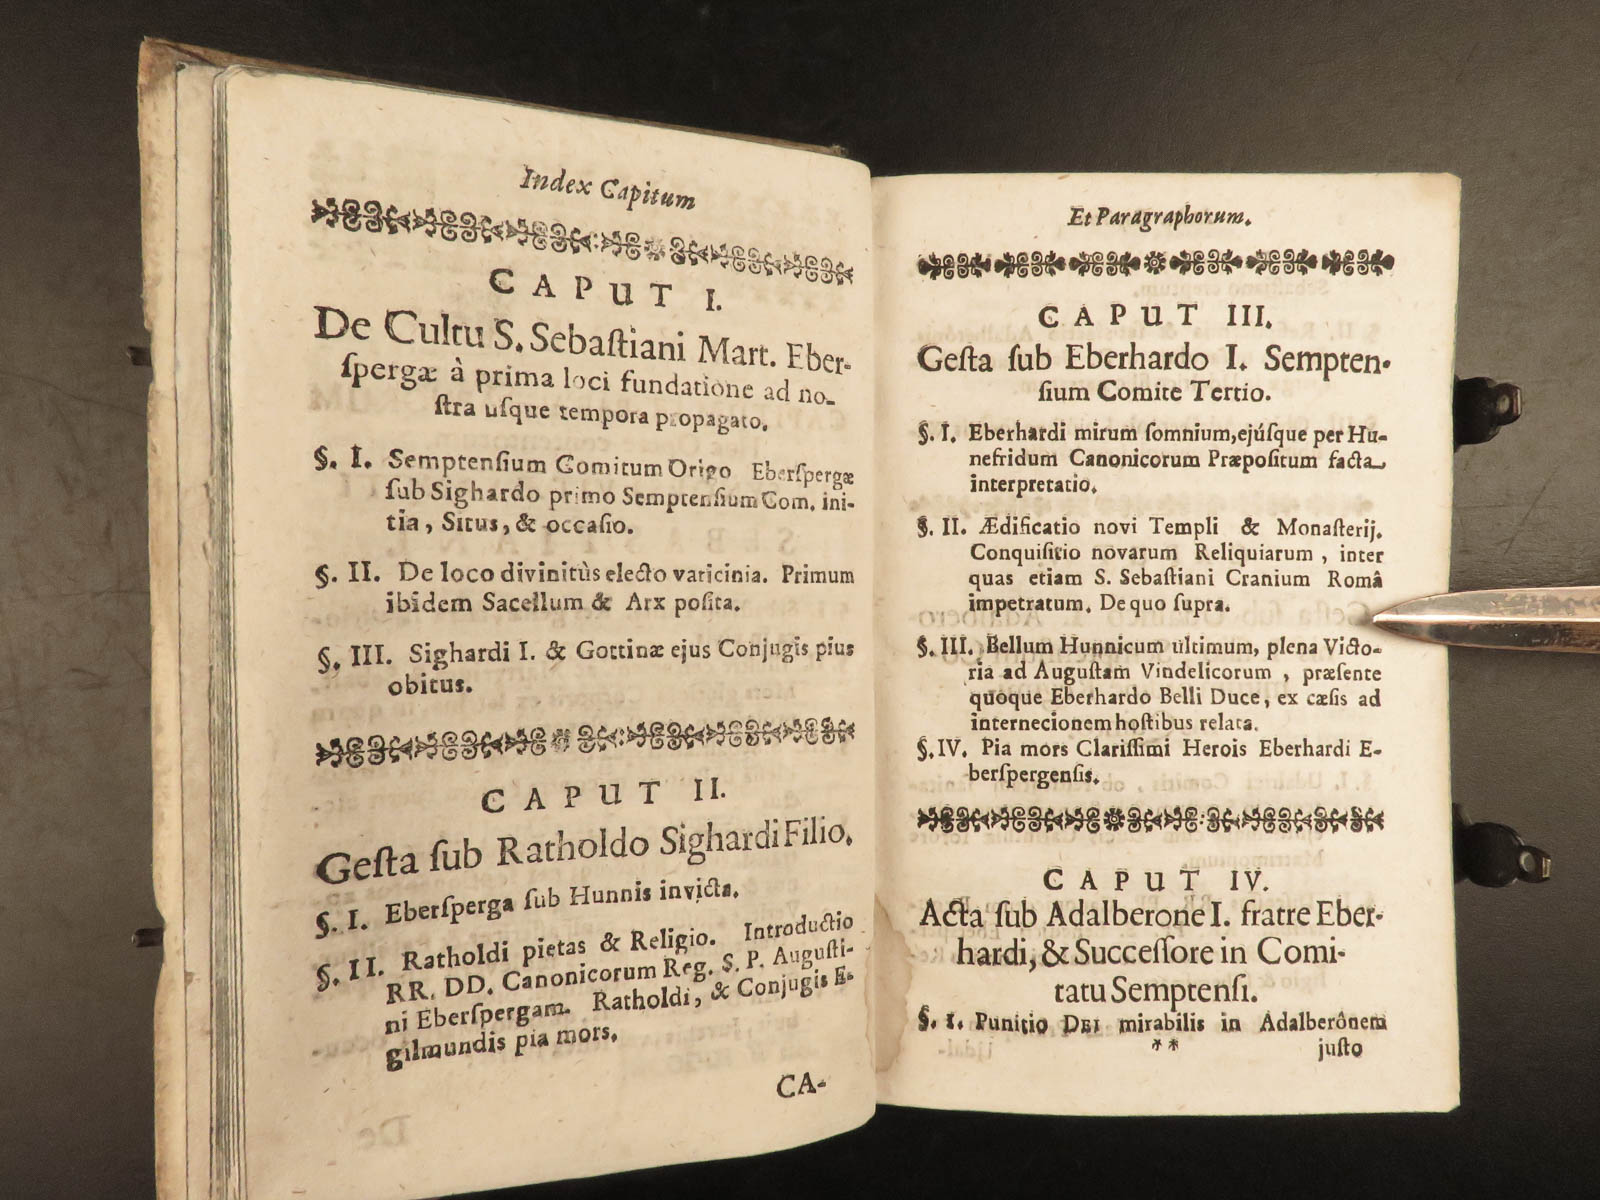 Index Capitum
CAPUT I.
De Cultu S. Sebaſtiani Mart. Eber-
ſpergæ à prima loci fundatione ad no-
ſtra uſque tempora propagato.
§. I. Semptenſium Comitum Origo Eberſpergæ
ſub Sighardo primo Semptenſium Com. ini-
tia, Situs, & occaſio.
§. II. De loco divinitùs electo vaticinia. Primum
ibidem Sacellum & Arx poſita.
§. III. Sighardi I. & Gottinæ ejus Conjugis pius
obitus.
CAPUT II.
Geſta ſub Ratholdo Sighardi Filio.
§. I. Eberſperga ſub Hunnis invicta.
§. II. Ratholdi pietas & Religio. Introductio
RR. DD. Canonicorum Reg. S. P. Auguſti-
ni Eberſpergam. Ratholdi, & Conjugis E-
gilmundis pia mors.
CA-
Et Paragraphorum.
CAPUT III.
Geſta ſub Eberhardo I. Sempten-
ſium Comite Tertio.
§. I. Eberhardi mirum ſomnium, ejúſque per Hu-
nefridum Canonicorum Præpoſitum facta
interpretatio.
§. II. Ædificatio novi Templi & Monaſterij.
Conquiſitio novarum Reliquiarum, inter
quas etiam S. Sebaſtiani Cranium Româ
impetratum. De quo ſupra.
§. III. Bellum Hunnicum ultimum, plena Victo-
ria ad Auguſtam Vindelicorum, præſente
quoque Eberhardo Belli Duce, ex cæſis ad
internecionem hoſtibus relata.
§. IV. Pia mors Clariſſimi Herois Eberhardi E-
berſpergenſis.
CAPUT IV.
Acta ſub Adalberone I. fratre Eber-
hardi, & Succeſſore in Comi-
tatu Semptenſi.
§. I. Punitio DEI mirabilis in Adalberônem
** juſto